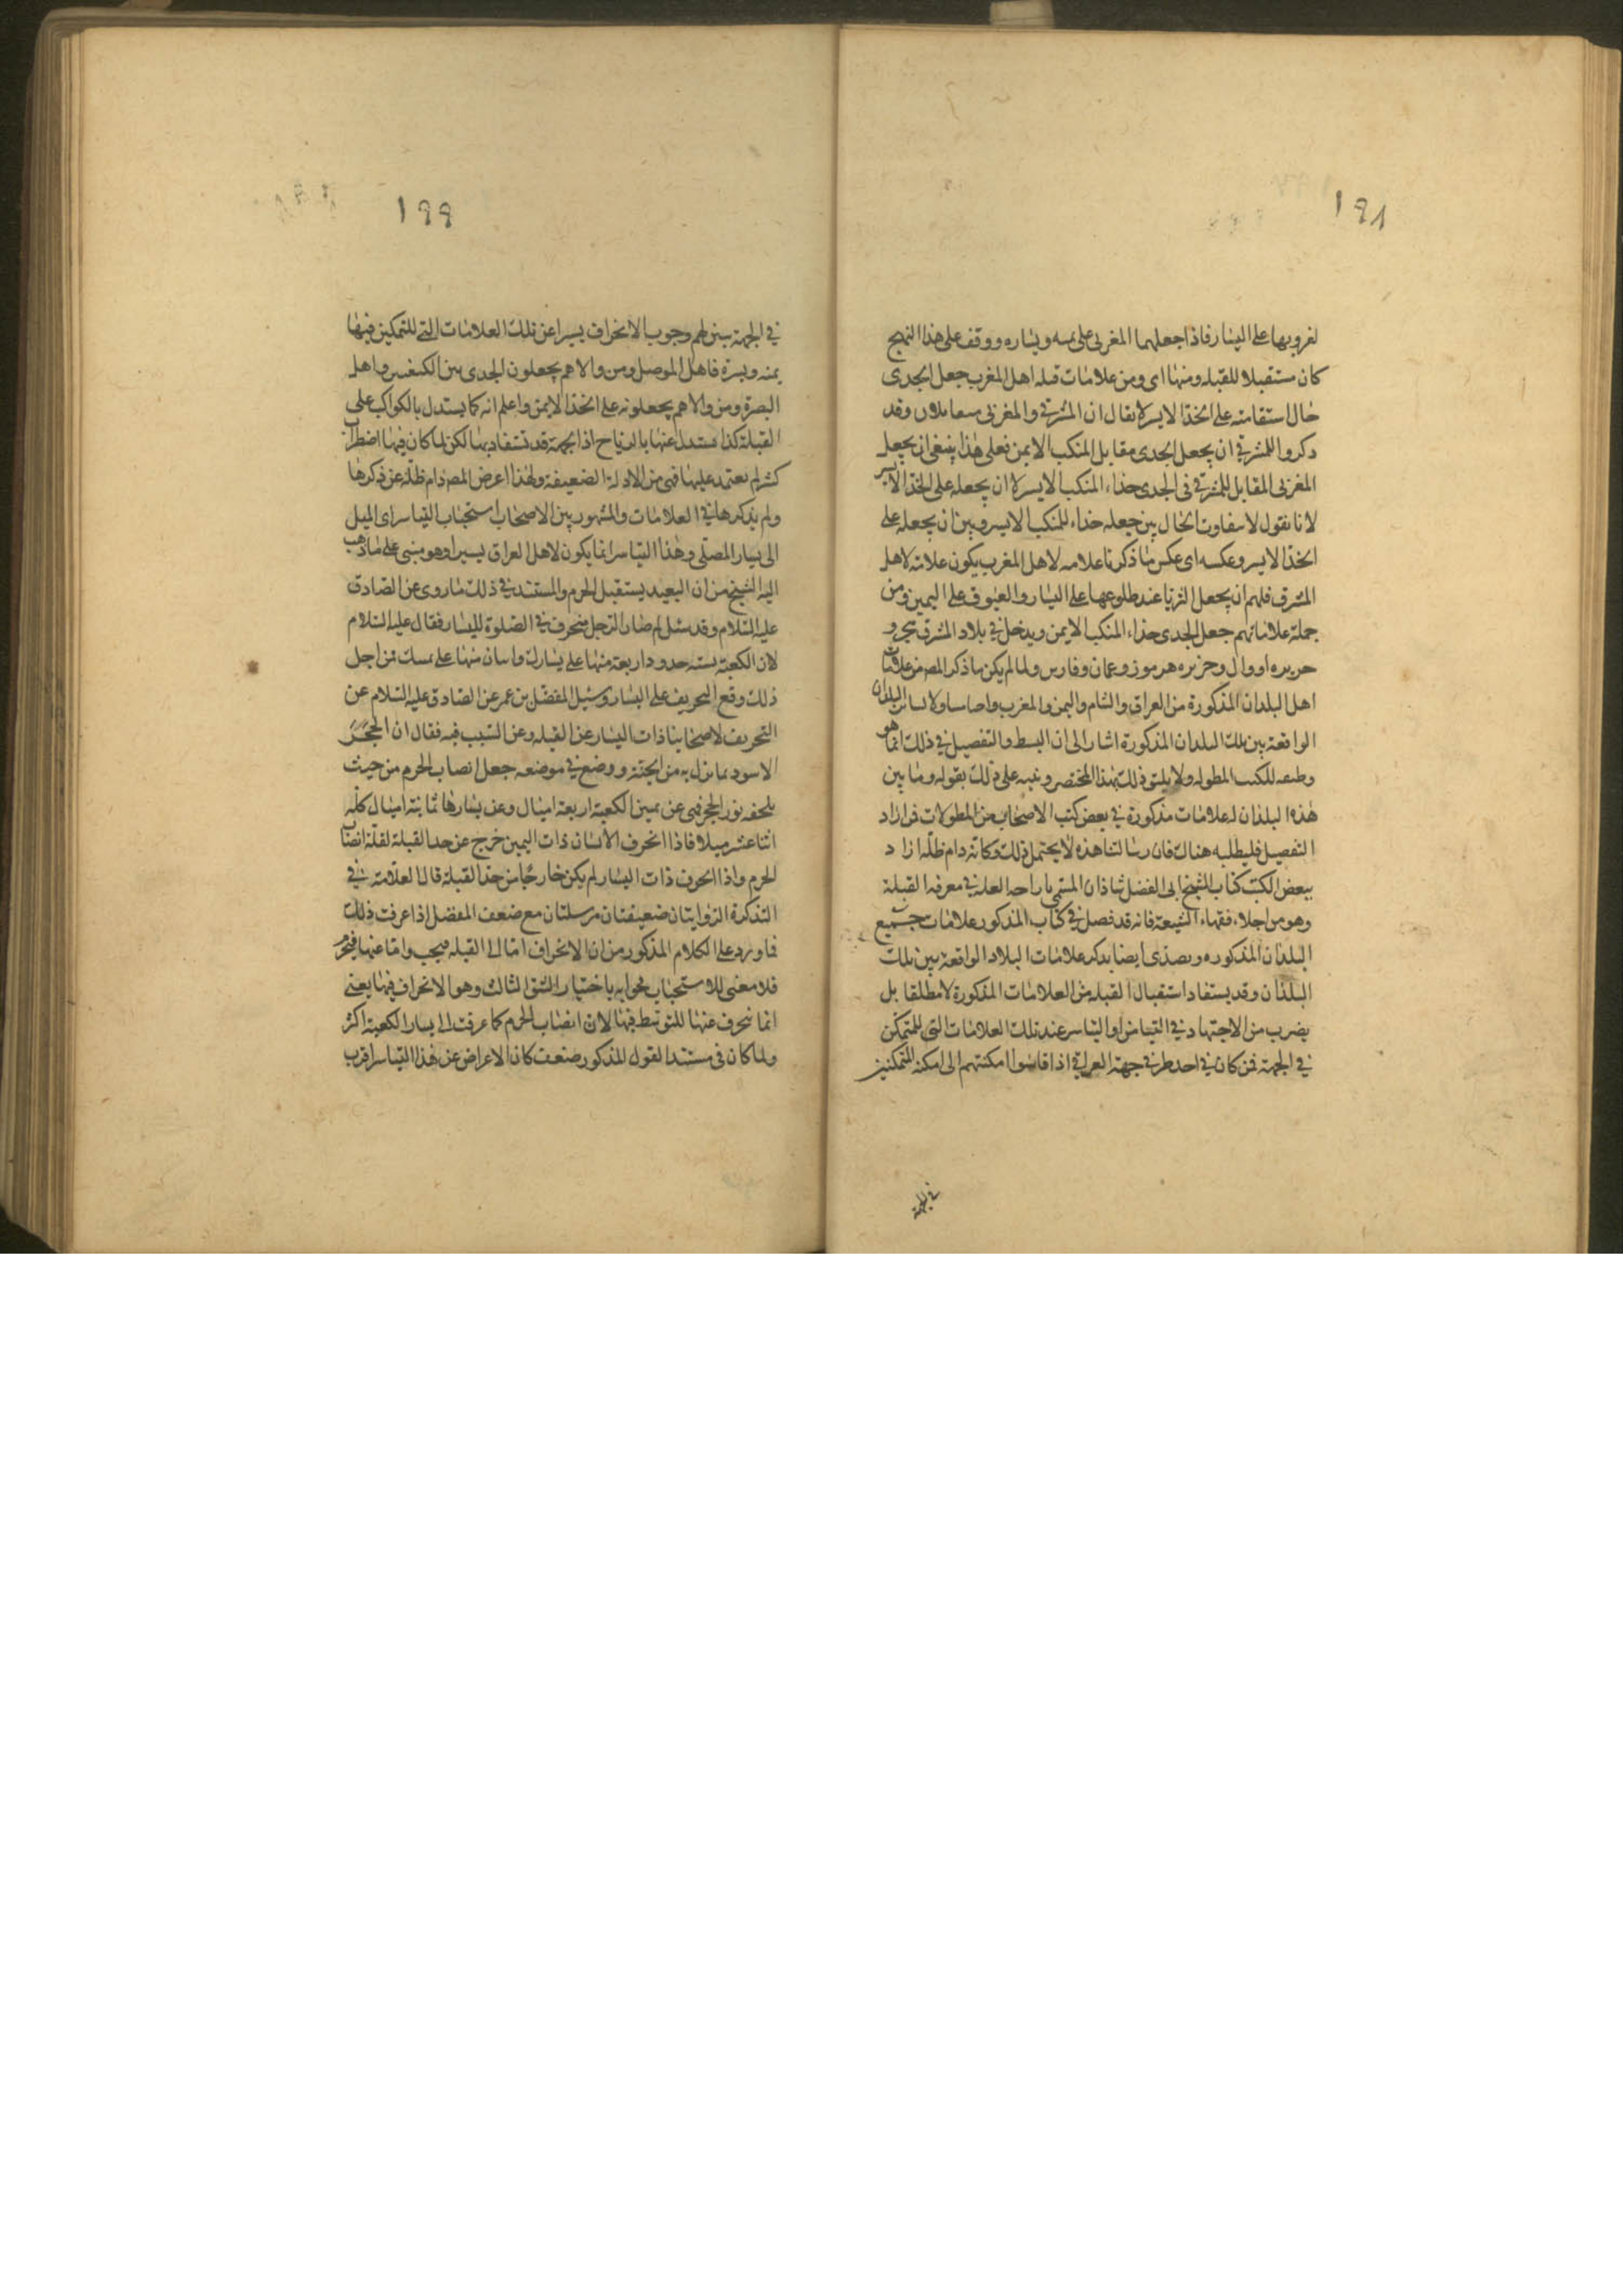 ١٩٨
لغروبها على اليسار فاذا جعلهما المغربى على يمينه ويساره ووقف على هذا النهج
كان مستقبلا للقبله ومنها اى ومن علامات قبله اهل المغرب جعل الجدى
حال استقامته على الخد الايسر لا يقال ان المشرقى والمغربى متقابلان وقد
ذكروا للمشرقى ان يجعل الجدى مقابل المنكب الايمن فعلى هذا ينبغى ان يجعل
المغربى المقابل للمشرقى الجدى حذاء المنكب الايسر لا ان يجعله على الخد الايسر
لانا نقول لا يتفاوت الحال بين جعله حذاء المنكب الايسر وبين ان يجعله على
الخد الايسر وعكسه اى عكس ما ذكرنا علامه لاهل المغرب يكون علامة لاهل
المشرق فلهم ان يجعل الثريا عند طلوعها على اليسار والعيوق على اليمين ومن
جملة علاماتهم جعل الجدى حذاء المنكب الايمن ويدخل فى بلاد المشرق
جزيره اووال وجزيره هرموز وعمان وفارس ولما لم يكن ما ذكر المص من علامات
اهل البلدان المذكورة من العراق والشام واليمن والمغرب ولا لسائر البلدان
الواقعة بين تلك البلدان المذكورة اشار الى ان البسط والتفصيل فى ذلك انما هو
وظيفه للكتب المطوله ولا يليق ذلك بهذا المختصر ونبه على ذلك بقوله وما بين
هذه البلدان له علامات مذكورة فى بعض كتب الاصحاب من المطولات فمن اراد
التفصيل فليطلبه هناك فان رسالتنا هذه لا يحتمل ذلك وكانه دام ظله اراد
ببعض الكتب كتاب الشيخ ابى الفضل شاذان المسمى بازاحه العله فى معرفه القبلة
وهو من اجلاء فقهاء الشيعة فانه قد فصل فى كتاب المذكور علامات جميع
البلدان المذكوره وتصدى ايضا بذكر علامات البلاد الواقعة بين تلك
البلدان وقد يستفاد استقبال القبله من العلامات المذكورة لا مطلقا بل
بضرب من الاجتهاد فى التيامن او التياسر عند تلك العلامات التى للمتمكن
فى الجهة فمن كان فى احد طرفى جهة العراق اذا قاسوا امكنتهم الى امكنة المتمكنين
فى الجهة
١٩٩
فى الجهة يتبين لهم وجوب الانحراف يسيرا عن تلك العلامات التى للمتمكنين فيها
يمنه ويسرة فاهل الموصل ومن والاهم يجعلون الجدى بين الكتفين واهل
البصرة ومن والاهم يجعلونه على الخد الايمن واعلم انه كما يستدل بالكواكب على
القبلة كذا يستدل عنها بالرياح اذ الجهة قد تستفاد بها لكن لما كان فيها اضطراب
كثير لم يعتمد عليها فهى من الادلة الضعيفة ولهذا اعرض المص دام ظله عن ذكرها
ولم يذكرها فى العلامات والمشهور بين الاصحاب استحباب التياسر اى الميل
الى يسار المصلى وهذا التياسر انما يكون لاهل العراق يسيرا وهو مبنى على ما ذهب
اليه الشيخ من ان البعيد يستقبل الحرم والمستند فى ذلك ما روى عن الصادق
عليه السلام وقد سئل لم صار الرجل منحرف فى الصلوة لليسار فقال عليه السلام
لان الكعبة بسته حدود اربعة منها على يسارك واسان منها على يمينك فمن اجل
ذلك وقع التحريف على اليسار وسئل المفضل بن عمر عن الصادق عليه السلام عن
التحريف لاصحابنا ذات اليسار عن القبله وعن السبب فيه فقال ان الحجر
الاسود لما نزل به من الجنة ووضع فى موضعه جعل انصاب الحرم من حيث
يلحقه نور الحجر فهى عن يمين الكعبة اربعة اميال وعن يسارها ثمانية اميال كله
اثنا عشر ميلا فاذا انحرف الانسان ذات اليمين خرج عن حد القبلة لقلة انصاب
الحرم واذا انحرف ذات اليسار لم يكن خارجا من حد القبلة قال العلامة فى
التذكرة الروايتان ضعيفتان مرسلتان مع ضعف المفضل اذا عرفت ذلك
فما ورد على الكلام المذكور من ان الانحراف اما الى القبله فيجب واما عنها فيحرم
فلا معنى للاستحباب فجوابه باختيار الشق الثالث وهو الانحراف فيها يعنى
انما ينحرف عنها للتوسط فيها لان انصاب الحرم كما عرفت الى يسار الكعبة اكثر
ولما كان فى مستند القول المذكور ضعف كان الاعراض عن هذا التياسر اقرب